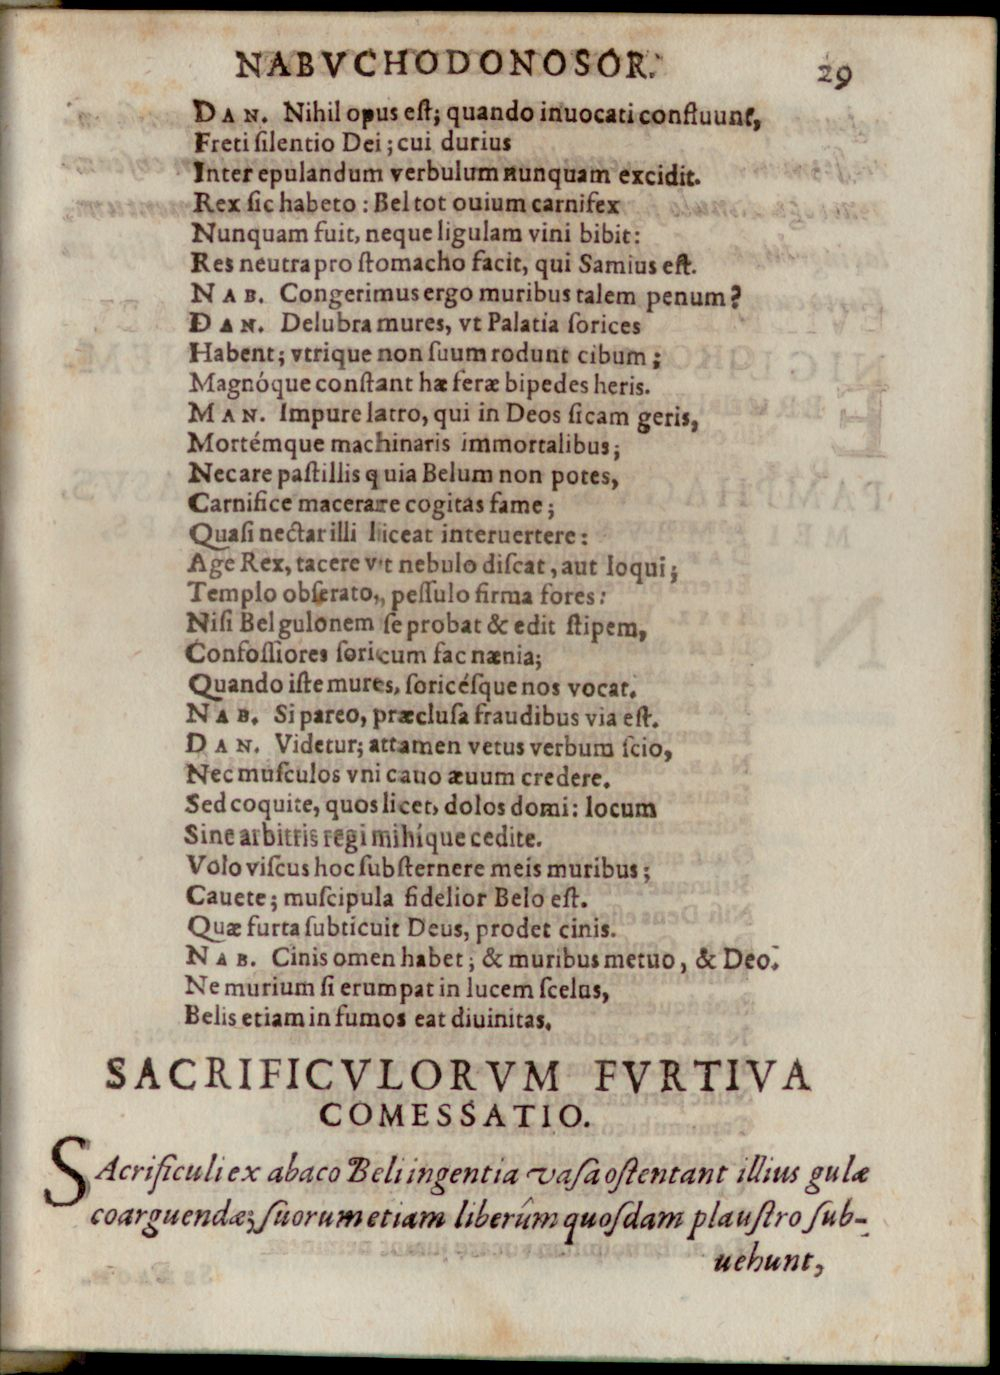 NABVCHODONOSOR. 29
DAN. Nihil opus eſt; quando inuocati confluunt,
Freti ſilentio Dei; cui durius
Inter epulandum verbulum nunquam excidit.
Rex ſic habeto: Bel tot ouium carnifex
Nunquam fuit, neque ligulam vini bibit:
Res neutra pro ſtomacho facit, qui Samius eſt.
NAB. Congerimus ergo muribus talem penum?
DAN. Delubra mures, vt Palatia ſorices
Habent; vtrique non ſuum rodunt cibum;
Magnóque conſtant hæ feræ bipedes heris.
MAN. Impure latro, qui in Deos ſicam geris,
Mortémque machinaris immortalibus;
Necare paſtillis quia Belum non potes,
Carnifice macerare cogitas fame;
Quaſi nectar illi liceat interuertere:
Age Rex, tacere vt nebulo diſcat, aut loqui;
Templo obſerato, peſſulo firma fores:
Niſi Bel gulonem ſe probat & edit ſtipem,
Confoſſiores ſoricum fac nænia;
Quando iſte mures, ſoricéſque nos vocat.
NAB. Si pareo, præcluſa fraudibus via eſt.
DAN. Videtur; attamen vetus verbum ſcio,
Nec muſculos vni cauo æuum credere.
Sed coquite, quos licet, dolos domi: locum
Sine arbitris regi mihíque cedite.
Volo viſcus hoc ſubſternere meis muribus;
Cauete; muſcipula fidelior Belo eſt.
Quæ furta ſubticuit Deus, prodet cinis.
NAB. Cinis omen habet; & muribus metuo, & Deo.
Ne murium ſi erumpat in lucem ſcelus,
Belis etiam in fumos eat diuinitas.
SACRIFICVLORVM FVRTIVA
COMESSATIO.
SAcrificuli ex abaco Beli ingentia vaſa oſtentant illius gulæ
coarguendæ; ſuorum etiam liberûm quoſdam plauſtro ſub-
uehunt,